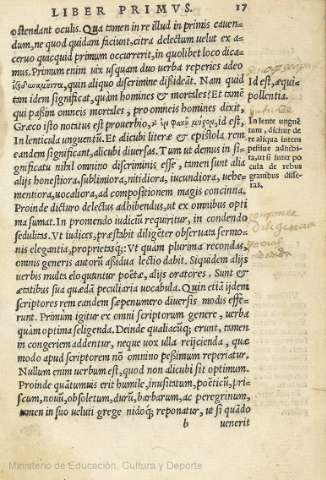 LIBER PRIMVS. 17
ostendant oculis. Qua tamen in re illud in primis cauen-
dum, ne quod quidam faciunt, citra delectum uelut ex a-
ceruo quicquid primum occurrerit, in quolibet loco dica-
mus. Primum enim uix usquam duo uerba reperies adeo
ἰσοδυναμοῦντα, quin aliquo discrimine dißideāt. Nam quid
tam idem significat, quàm homines & mortales? Et tamen
qui paßim omneis mortales, pro omneis homines dixit,
Græco isto notatus est prouerbio, τὸ ἐν φακῇ μύρον, id est,
In lenticula unguentū. Et alicubi literæ & epistola rem
eandem significant, alicubi diuersas. Tum ut demus in si-
gnificatu nihil omnino discriminis esse, tamen sunt alia
alijs honestiora, sublimiora, nitidiora, iucundiora, uehe-
mentiora, uocaliora, ad compositionem magis concinna.
Proinde dicturo delectus adhibendus, ut ex omnibus opti
ma sumat. In promendo iudiciū requiritur, in condendo
sedulitas. Vt iudices, præstabit diligēter obseruata sermo-
nis elegantia, proprietasq;: Vt quàm plurima recondas,
omnis generis autorū aßidua lectio dabit. Siquidem alijs
uerbis multa eloquuntur poëtæ, alijs oratores. Sunt &
ætatibus sua quædā peculiaria uocabula. Quin etiā ijdem
scriptores rem eandem sæpenumero diuersis modis effe-
runt. Primùm igitur ex omni scriptorum genere, uerba
quàm optima seligenda. Deinde qualiacūq; erunt, tamen
in congeriem addentur, neque uox ulla reijcienda, quæ
modo apud scriptorem nō omnino peßimum reperiatur.
Nullum enim uerbum est, quod non alicubi sit optimum.
Proinde quātumuis erit humile, inusitatum, poëticū, pri-
scum, nouū, obsoletum, durū, barbarum, ac peregrinum,
tamen in suo ueluti grege nidoq; reponatur, ut si quādo
b uenerit
Id est, æqui
pollentia.
In lente unguē
tum, dicitur de
re aliqua intem
pestiue adhibi-
ta, ut si
de rebus
grauibus
Ministerio de Educación, Cultura y Deporte